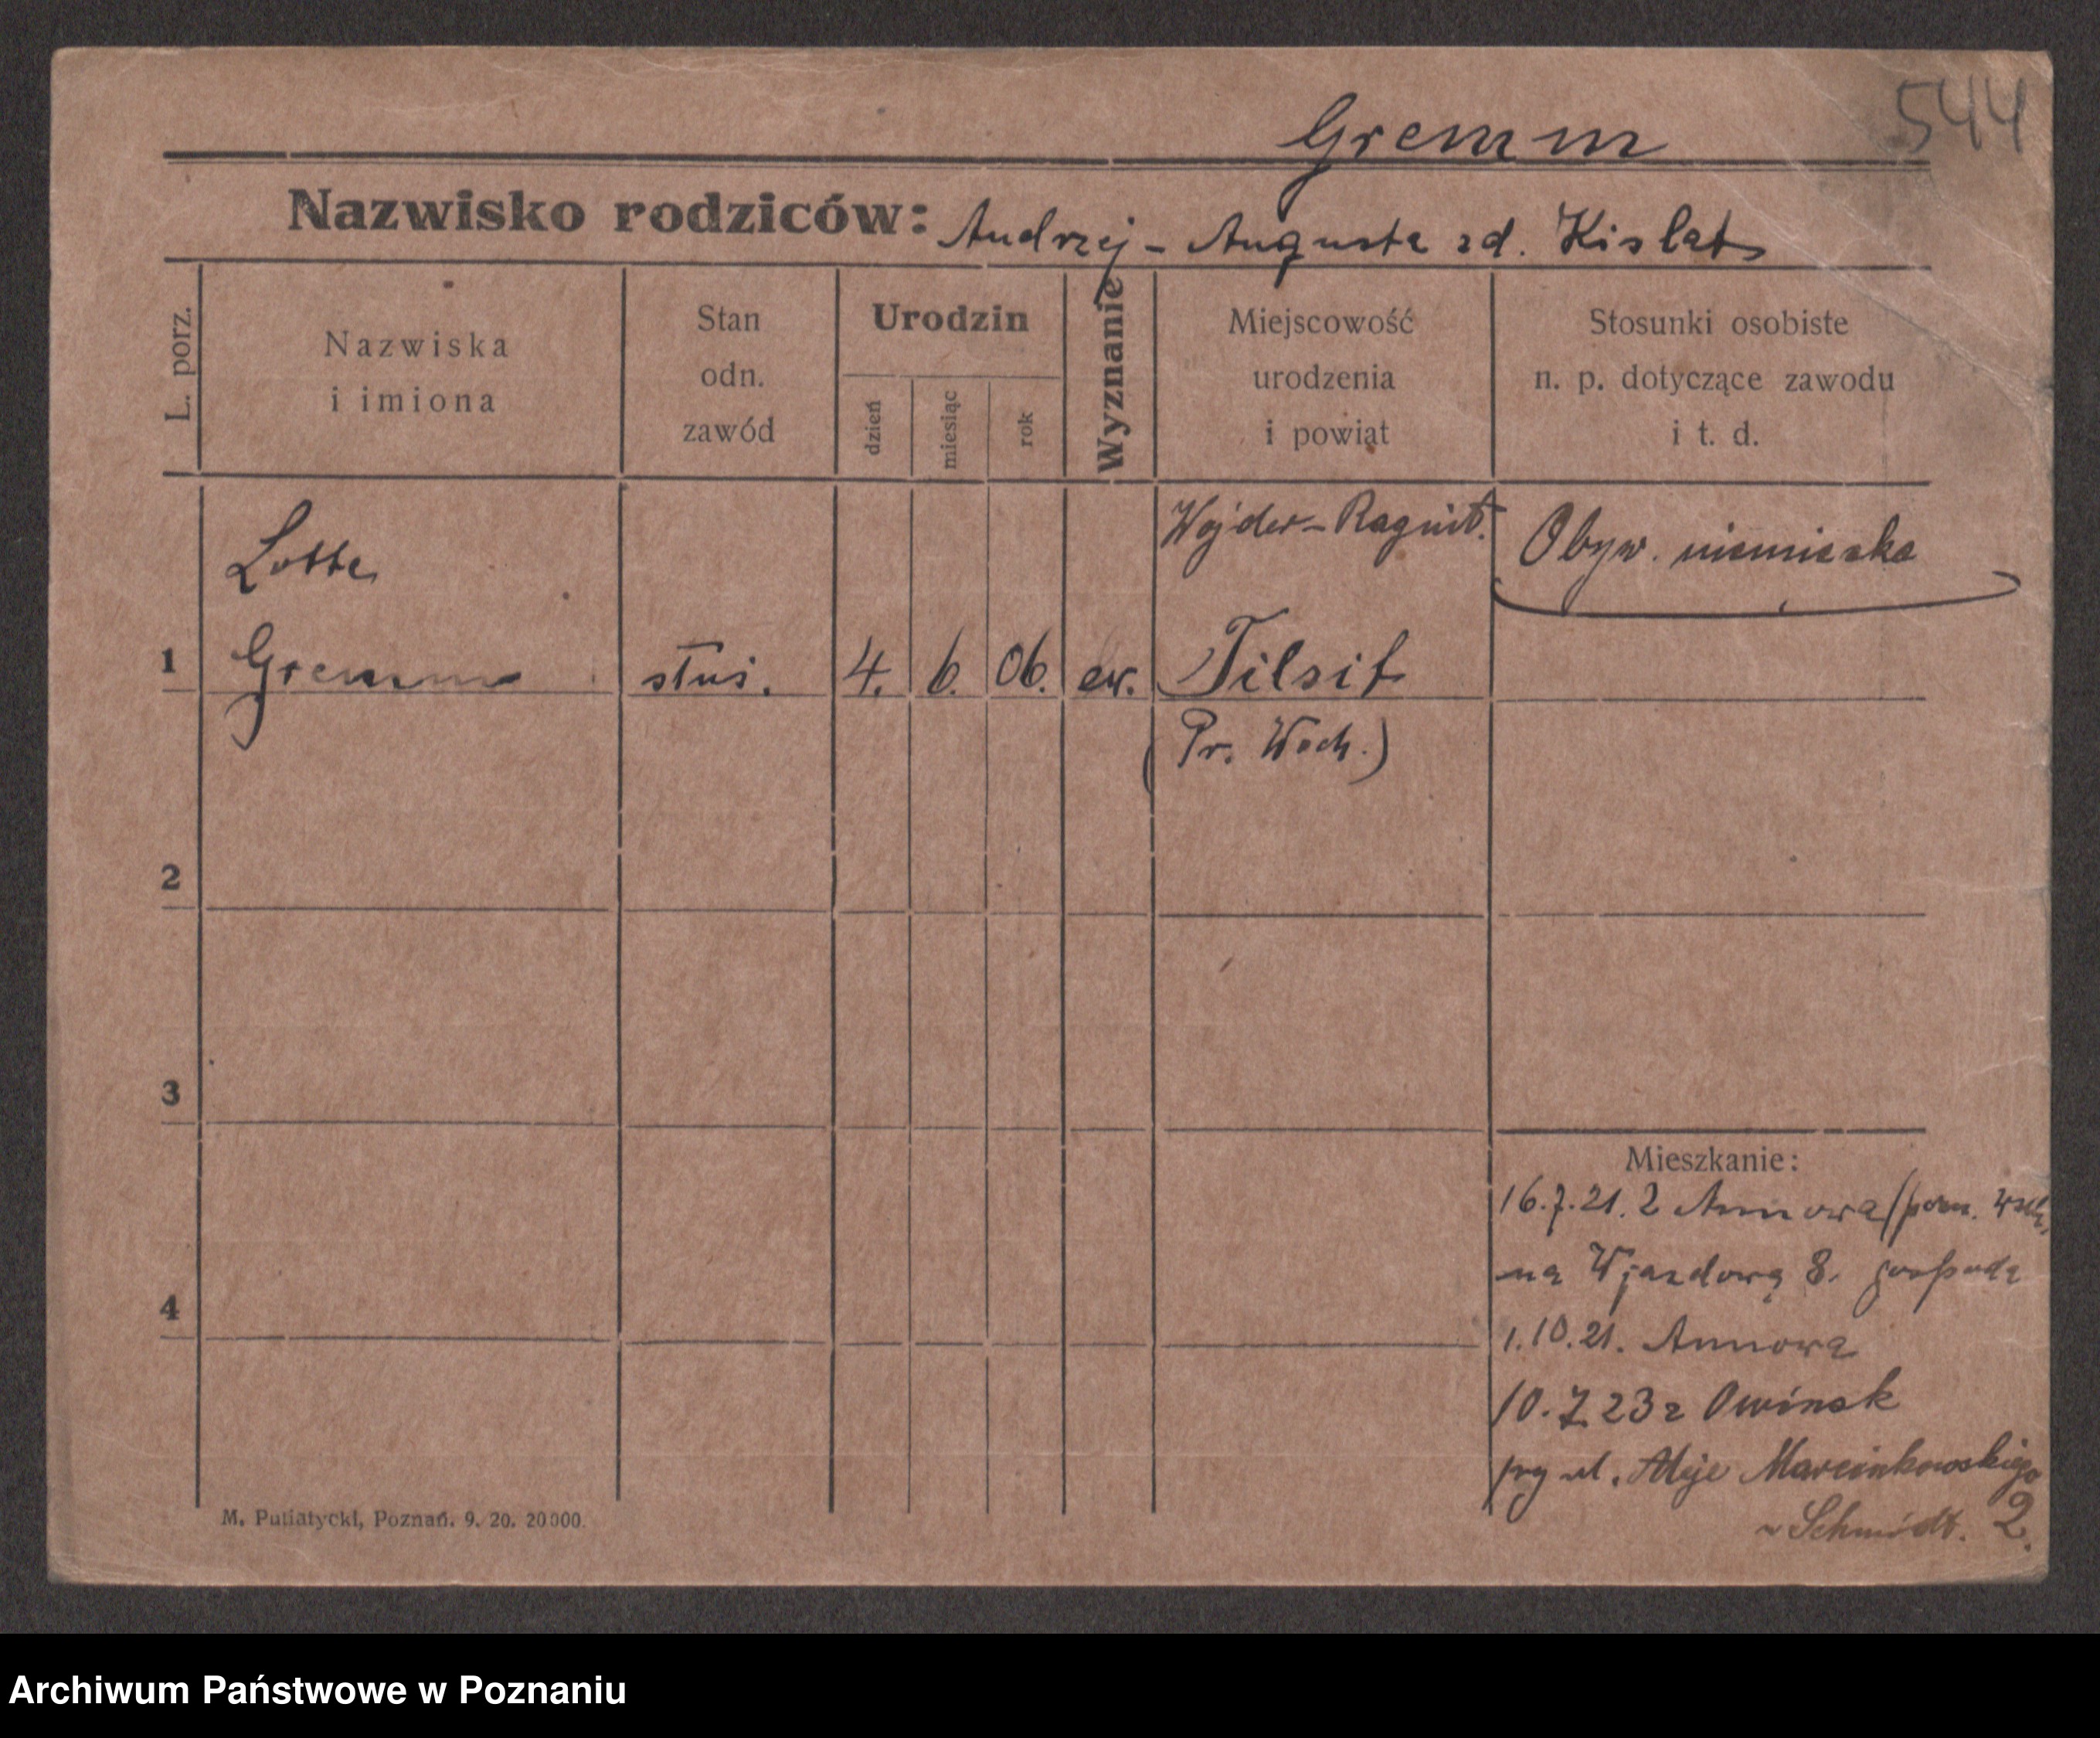 544
Gremm
Nazwisko rodziców: Andrzej - Augusta zd. Kislat
L. porz.
Nazwiska
i imiona
Stan
odn.
zawód
Urodzin
dzień
miesiąc
rok
Wyznanie
Miejscowość
urodzenia
i powiat
Stosunki osobiste
n. p. dotyczące zawodu
i t. d.
Lotte
Gremm
1
słuś.
4. 6. 06.
ew.
Wojder-Ragnit.
Tilsit
(Pr. Wsch.)
Obyw. niemiecka
2
3
4
Mieszkanie:
16.7.21. z Annowa (pow. Wsch.
na Wjazdową 8. gospoda
1.10.21. Annowa
10.7 23 z Owinsk
przy ul. Aleje Marcinkowskiego
Schmidt. 2.
M. Putiatycki, Poznań. 9. 20. 20000.
Archiwum Państwowe w Poznaniu